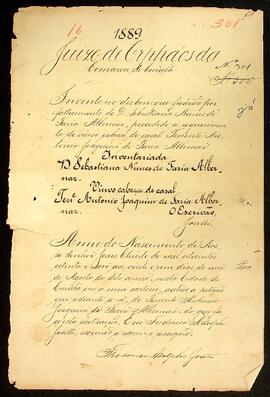 1889
16
301
Juizo de Orphãos da
Comarca de Cuiabá
Nº 301
Inventario dos bens que ficarão por
fallecimento de D. Sebastiana Nunes de
Faria Albernaz, procedido a requerimento
do viuvo cabeça de casal Tenente Antonio
Joaquim de Faria Albernaz
já
Inventariada
D. Sebastiana Nunes de Faria Alber-
naz.
Viuvo cabeça de casal
Tenᵉ Antonio Joaquim de Faria Alber-
naz.
O Escrivão,
Anno do Nascimento de Nos-
so Senhor Jesus Christo de mil oitocentos
oitenta e nove aos vinte e um dias do mez
de Agosto do dito anno, nesta Cidade de
Cuiabá em o meu cartorio, autuo a petição
que adiante se vê, do Tenente Antonio
Joaquim de Faria Albernaz: do que fiz
esta autuação. Eu Frederico Adolpho
escrivão a escrevi e assigno.
Frederico Adolpho